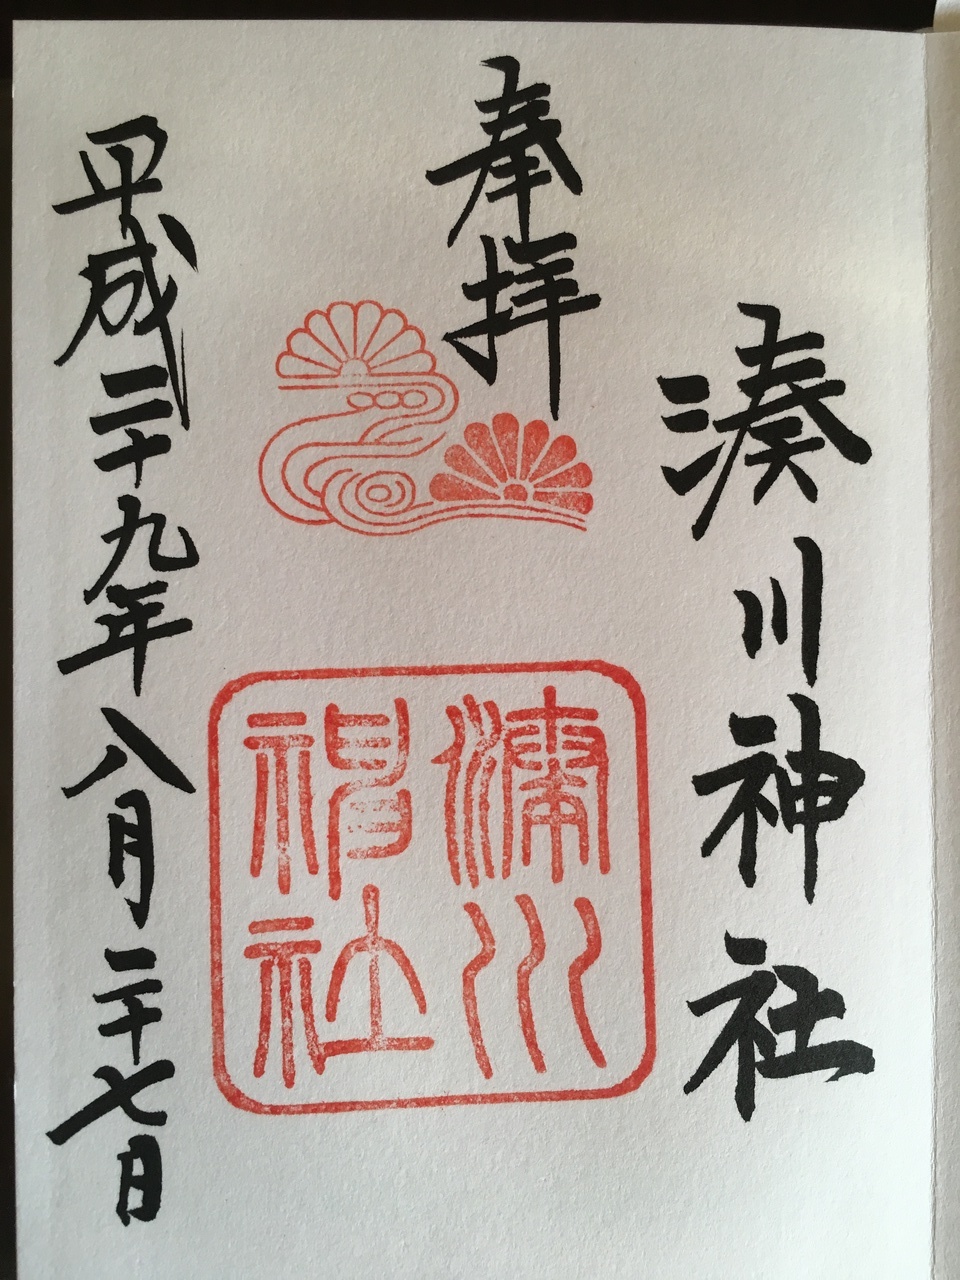 湊川神社
奉拝
湊川
神社
平成二十九年八月二十七日